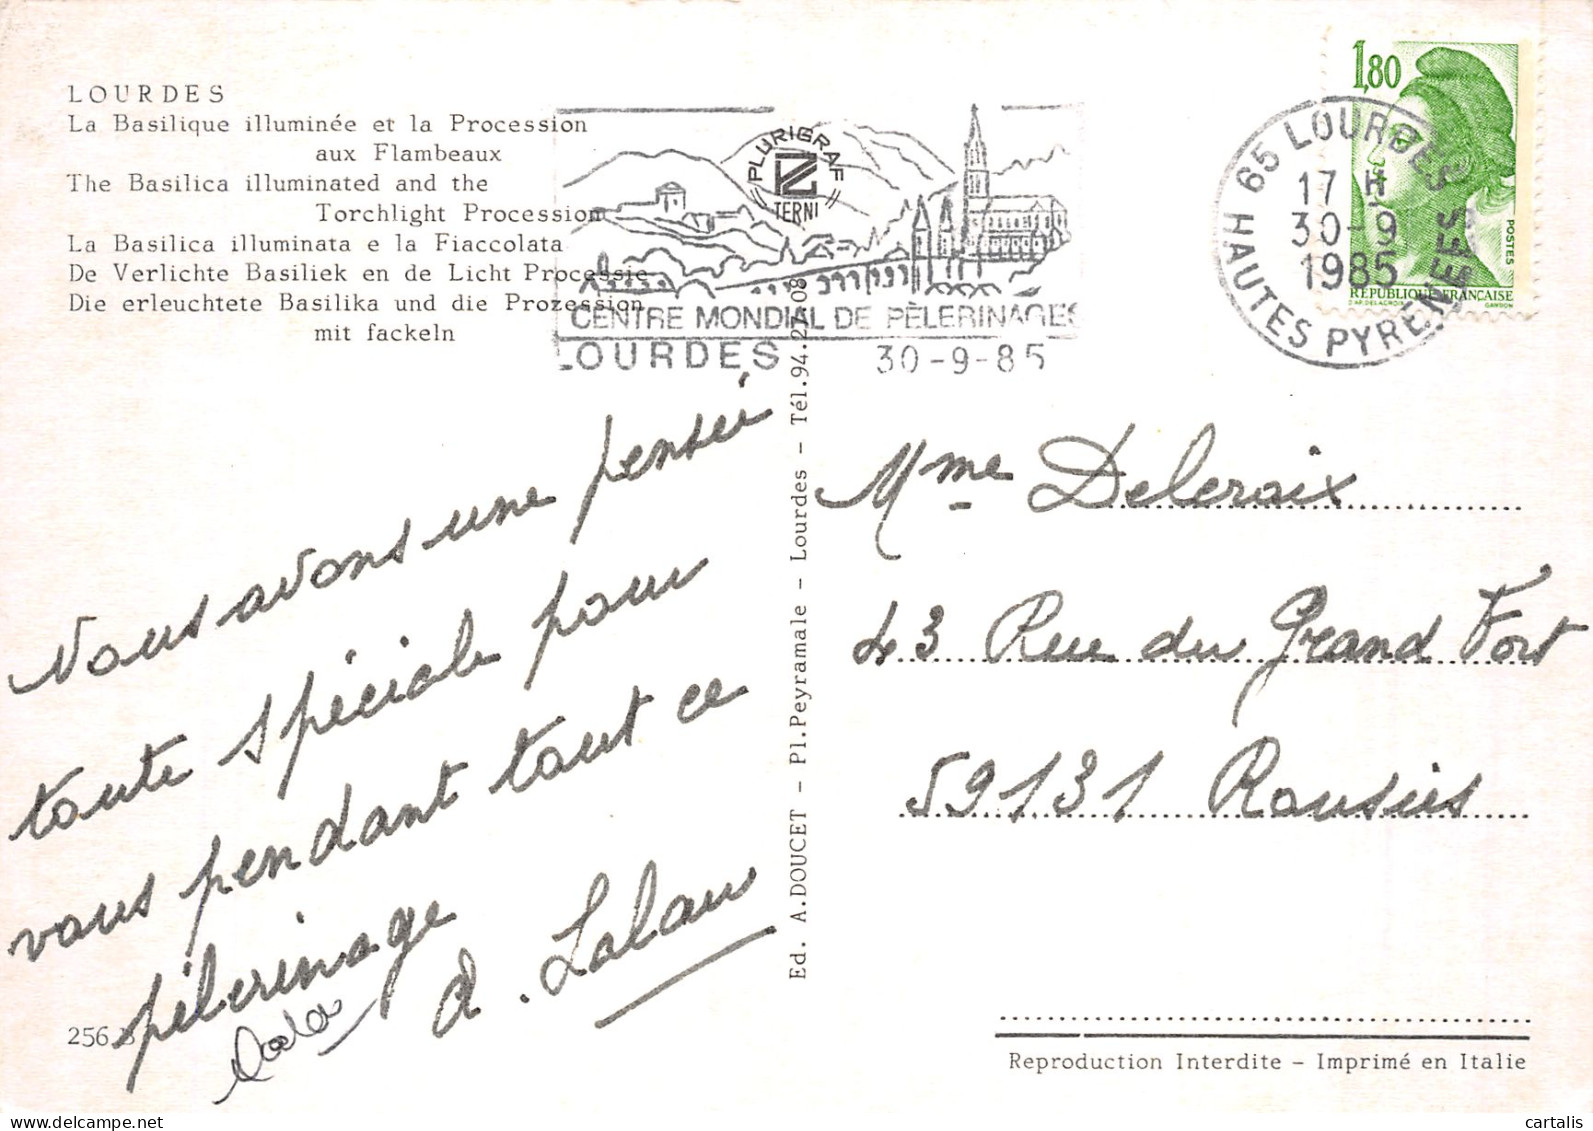 LOURDES
La Basilique illuminée et la Procession
aux Flambeaux
The Basilica illuminated and the
Torchlight Procession
La Basilica illuminata e la Fiaccolata
De Verlichte Basiliek en de Licht Processie
Die erleuchtete Basilika und die Prozession
mit fackeln
PLURIGRAF
TERNI
CENTRE MONDIAL DE PÈLERINAGES
LOURDES 30-9-85
1,80
POSTES
RÉPUBLIQUE FRANÇAISE
65 LOURDES
17 H
30-9
1985
HAUTES PYRENEES
Nous avons une pensée
toute spéciale pour
vous pendant tout ce
pélerinage
A. Lalau
256
Ed. A.DOUCET - Pl.Peyramale - Lourdes - Tél.94.27.08
Mme Deleroix
43 Rue du Grand Fort
59131 Rousies
Reproduction Interdite - Imprimé en Italie
cartalis